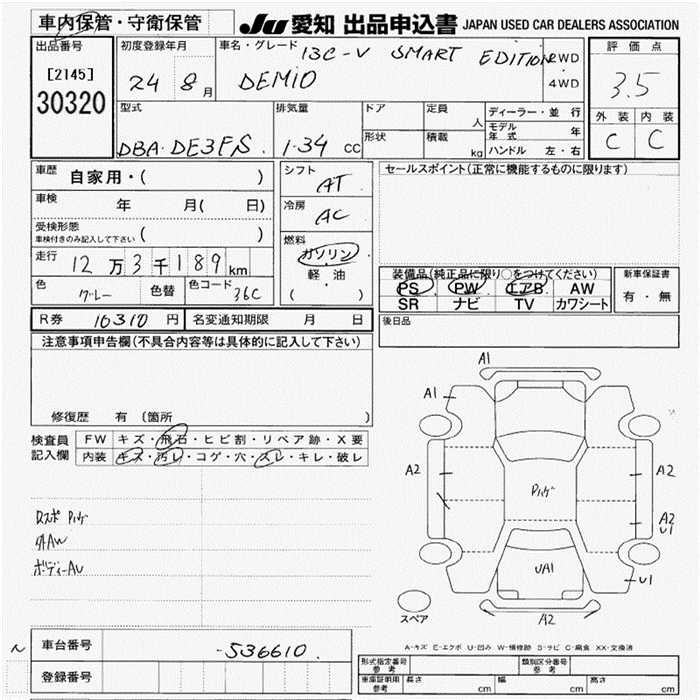 車内保管・守衛保管 JU愛知 出品申込書 JAPAN USED CAR DEALERS ASSOCIATION
出品番号 [2145] 30320
初度登録年月 24 8月
車名・グレード 13C-V SMART EDITION
DEMIO
2WD
4WD
評価点 3.5
外装 内装
C C
型式 DBA-DE3FS
排気量 1.34 cc
ドア 定員 人
形状 積載 kg
ディーラー・並行
モデル年式 年
ハンドル 左・右
車歴 自家用・( )
車検 年 月( 日)
受検形態
車検付きのみ記入して下さい ( )
走行 12万3千189km
色 グレー 色替 色コード 36C
シフト AT
冷房 AC
燃料 ガソリン
軽油
( )
セールスポイント(正常に機能するものに限ります)
装備品(純正品に限り○をつけてください)
PS PW エアB AW
SR ナビ TV カワシート
新車保証書
有・無
R券 10310円 名変通知期限 月 日
後日品
注意事項申告欄(不具合内容等は具体的に記入して下さい)
修復歴 有 (箇所 )
検査員記入欄
FW キズ・飛石・ヒビ割・リペア跡・X要
内装 キズ・汚レ・コゲ・穴・スレ・キレ・破レ
外AW
A1
A1
A2 A2
A2
U1
UA1 U1
A2
スペア
A-キズ E-エクボ U-凹み W-補修跡 S-サビ C-腐食 XX-交換済
車台番号 -536610
登録番号
型式指定番号 参考 類別区分番号 参考
車庫証明用 参考 長さ cm 幅 cm 高さ cm